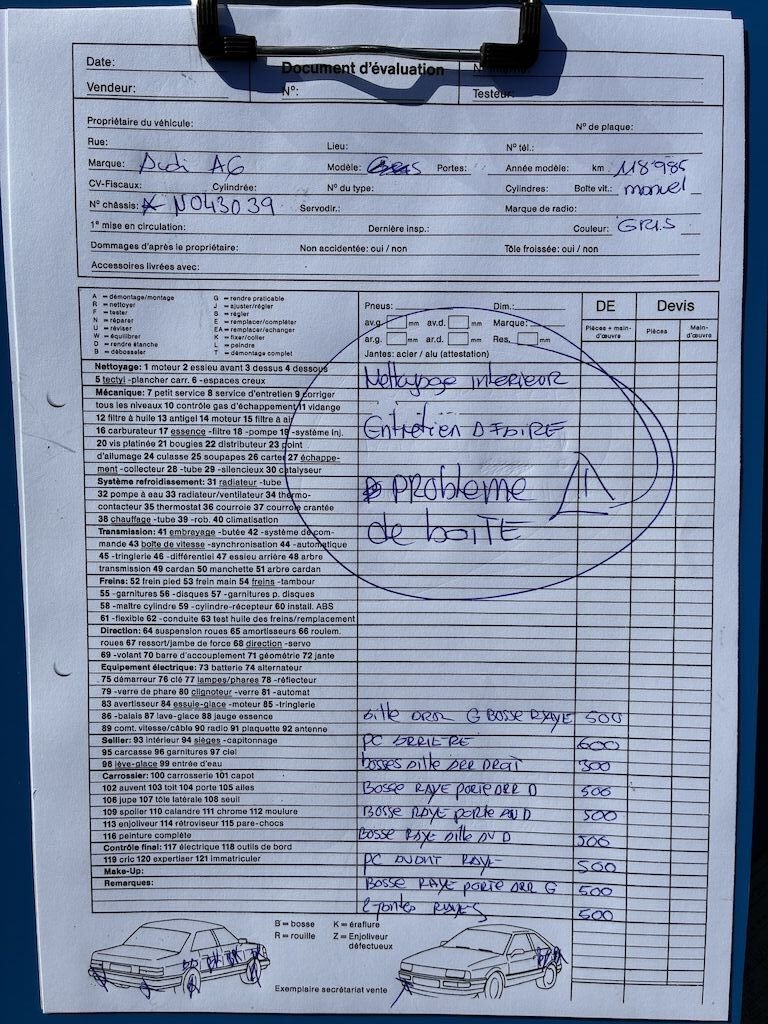 Date:
Document d'évaluation
Vendeur:
N°:
Testeur:
Propriétaire du véhicule:
N° de plaque:
Rue:
Lieu:
N° tél.:
Marque: Audi A6 Modèle: Portes: Année modèle: km 118'985
CV-Fiscaux: Cylindrée: N° du type: Cylindres: Boîte vit.: manuel
N° châssis: N043039 Servodir.: Marque de radio:
1e mise en circulation: Dernière insp.: Couleur: GRIS
Dommages d'après le propriétaire: Non accidentée: oui / non Tôle froissée: oui / non
Accessoires livrées avec:
A = démontage/montage G = rendre praticable
R = nettoyer J = ajuster/régler
F = tester S = régler
N = réparer E = remplacer/compléter
U = réviser EA = remplacer/echanger
W = équilibrer K = fixer/coller
D = rendre étanche L = peindre
B = débosseler T = démontage complet
Pneus: Dim.:
av.g. mm av.d. mm Marque:
ar.g. mm ar.d. mm Res. mm
Jantes: acier / alu (attestation)
DE Devis
Pièces + main-d'œuvre Pièces Main-d'œuvre
Nettoyage: 1 moteur 2 essieu avant 3 dessus 4 dessous
5 tectyl -plancher carr. 6 -espaces creux
Mécanique: 7 petit service 8 service d'entretien 9 corriger
tous les niveaux 10 contrôle gaz d'échappement 11 vidange
12 filtre à huile 13 antigel 14 moteur 15 filtre à air
16 carburateur 17 essence -filtre 18 -pompe 19 -système inj.
20 vis platinée 21 bougies 22 distributeur 23 point
d'allumage 24 culasse 25 soupapes 26 carter 27 échappe-
ment -collecteur 28 -tube 29 -silencieux 30 catalyseur
Système refroidissement: 31 radiateur -tube
32 pompe à eau 33 radiateur/ventilateur 34 thermo-
contacteur 35 thermostat 36 courroie 37 courroie crantée
38 chauffage -tube 39 -rob. 40 climatisation
Transmission: 41 embrayage -butée 42 -système de com-
mande 43 boîte de vitesse -synchronisation 44 -automatique
45 -tringlerie 46 -différentiel 47 essieu arrière 48 arbre
transmission 49 cardan 50 manchette 51 arbre cardan
Freins: 52 frein pied 53 frein main 54 freins -tambour
55 -garnitures 56 -disques 57 -garnitures p. disques
58 -maître cylindre 59 -cylindre-récepteur 60 install. ABS
61 -flexible 62 -conduite 63 test huile des freins/remplacement
Direction: 64 suspension roues 65 amortisseurs 66 roulem.
roues 67 ressort/jambe de force 68 direction -servo
69 -volant 70 barre d'accouplement 71 géométrie 72 jante
Equipement électrique: 73 batterie 74 alternateur
75 démarreur 76 clé 77 lampes/phares 78 -réflecteur
79 -verre de phare 80 clignoteur -verre 81 -automat
83 avertisseur 84 essuie-glace -moteur 85 -tringlerie
86 -balais 87 lave-glace 88 jauge essence
89 comt. vitesse/câble 90 radio 91 plaquette 92 antenne
Sellier: 93 intérieur 94 sièges -capitonnage
95 carcasse 96 garnitures 97 ciel
98 lève-glace 99 entrée d'eau
Carrossier: 100 carrosserie 101 capot
102 auvent 103 toit 104 porte 105 ailes
106 jupe 107 tôle latérale 108 seuil
109 spoiler 110 calandre 111 chrome 112 moulure
113 enjoliveur 114 rétroviseur 115 pare-chocs
116 peinture complète
Contrôle final: 117 électrique 118 outils de bord
119 cric 120 expertiser 121 immatriculer
Make-Up:
Remarques:
Nettoyage interieur
Entretien A FAIRE
PROBLEME
de boITE
Aille ARR G BOSSE RAYE 500
PC ARRIERE 600
bosses Aille ARR DROIT 300
BOSSE RAYE PORTE ARR D 500
BOSSE RAYE PORTE AV D 500
BOSSE RAYE Aille AV D 500
PC AVANT RAYE 500
BOSSE RAYE PORTE ARR G 500
RAYES 500
B = bosse K = éraflure
R = rouille Z = Enjoliveur
défectueux
Exemplaire secrétariat vente